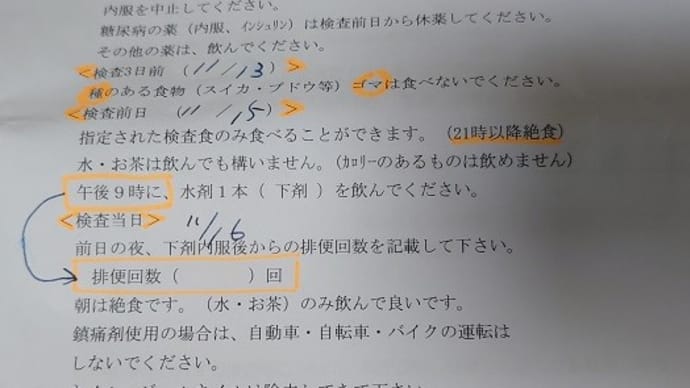 内服を中止してください。
糖尿病の薬（内服、ｲﾝｼｭﾘﾝ）は検査前日から休薬してください。
その他の薬は、飲んでください。
＜検査3日前　（11/13）＞
種のある食物（スイカ・ブドウ等）ゴマは食べないでください。
＜検査前日　（11/15）＞
指定された検査食のみ食べることができます。（21時以降絶食）
水・お茶は飲んでも構いません。（ｶﾛﾘｰのあるものは飲めません）
午後９時に、水剤１本（下剤）を飲んでください。
＜検査当日＞　11/16
前日の夜、下剤内服後からの排便回数を記載して下さい。
排便回数（　　　　）回
朝は絶食です。（水・お茶）のみ飲んで良いです。
鎮痛剤使用の場合は、自動車・自転車・バイクの運転は
しないでください。